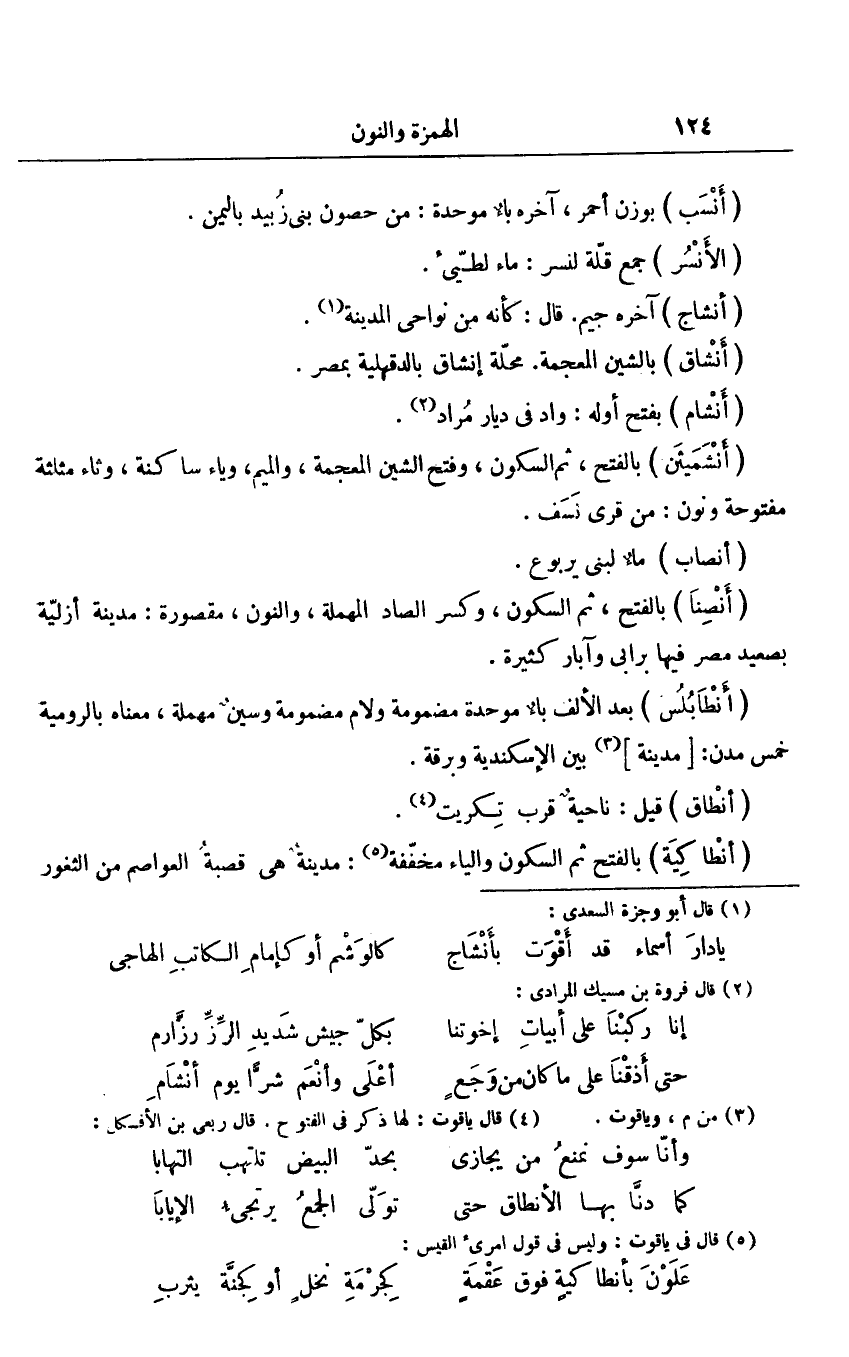 ١٢٤ الهمزة والنون
( أَنْسَب ) بوزن أحمر ، آخره باء موحدة : من حصون بنى زُبيد باليمن .
( الأَنْسُر ) جمع قلّة لنسر : ماء لطـيّىء .
( أنشاج ) آخره جيم. قال : كأنه من نواحى المدينة(١) .
( أَنْشاق ) بالشين المعجمة. محلّة إنشاق بالدقهلية بمصر .
( أَنْشام ) بفتح أوله : واد فى ديار مُراد(٢) .
( أَنْشَمَيثَن ) بالفتح ، ثم السكون ، وفتح الشين المعجمة ، والميم، وياء ساكنة ، وثاء مثلثة
مفتوحة ونون : من قرى نَسَف .
( أنصاب ) ماء لبنى يربوع .
( أَنْصِنَا ) بالفتح ، ثم السكون ، وكسر الصاد المهملة ، والنون ، مقصورة : مدينة أزليّة
بصعيد مصر فيها برابى وآبار كثيرة .
( أَنْطَابُلُس ) بعد الألف باء موحدة مضمومة ولام مضمومة وسينٌ مهملة ، معناه بالرومية
خمس مدن: [ مدينة ](٣) بين الإسكندية وبرقة .
( أنْطاق ) قيل : ناحيةٌ قرب تِـكريت(٤) .
( أنْطاكِيَة ) بالفتح ثم السكون والياء مخفّفة(٥) : مدينةٌ هى قصبةُ العواصم من الثغور
(١) قال أبو وجزة السعدى :
يادارَ أسماء قد أَقْوَت بأَنْشَاج كالوَشْم أو كإمامِ الـكاتبِ الهاجى
(٢) قال فروة بن مسيك المرادى :
إنا ركبْنَا على أبياتِ إخوتنا بكلّ جيش شَديدِ الرِّزِّ رزَّارم
حتى أَذقْنَا على ما كان من وَجَعٍ أعْلَى وأنْعَم شرًّا يوم أنْشَامِ
(٣) من م ، وياقوت . (٤) قال ياقوت : لها ذكر فى الفتوح . قال ربعى بن الأفسكل :
وأنّا سوف نمنعُ من يجازى بحدّ البيض تلتهب التهابا
كما دنَّا بهـا الأنطاق حتى تولّى الجمعُ يرتجىء الإيابَا
(٥) قال فى ياقوت : وليس فى قول امرىء القيس :
عَلَوْنَ بأنطاكيةٍ فوق عَقْمَةٍ كَجِرْمَةِ نخلٍ أو كَجنَّة يثربِ